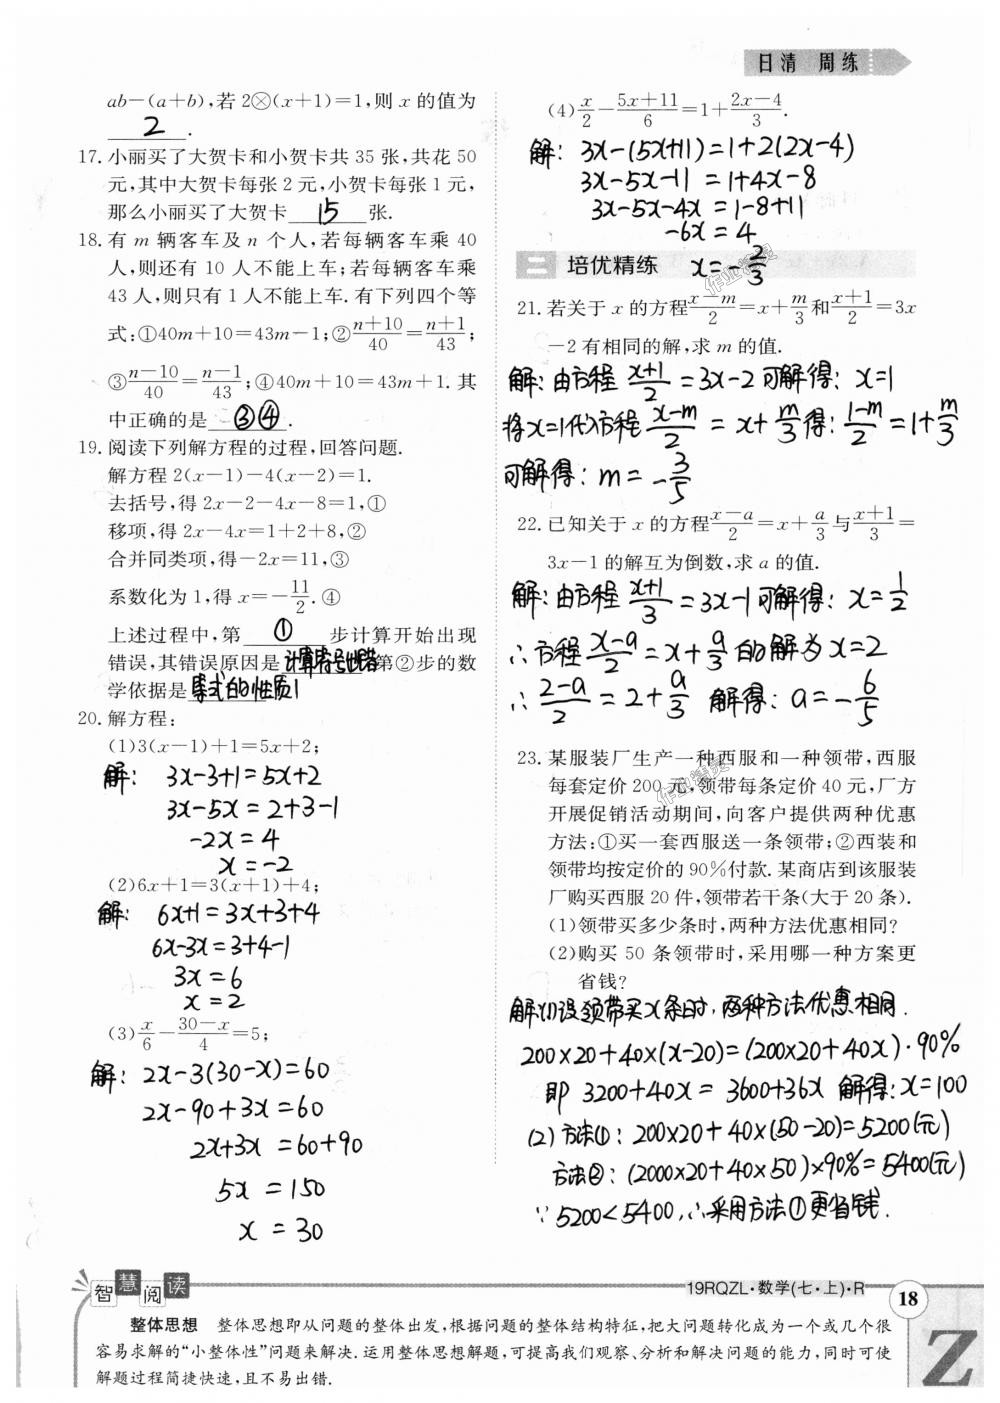 日清 周练
ab-(a+b),若 2⊗(x+1)=1,则 x 的值为
2.
17. 小丽买了大贺卡和小贺卡共 35 张,共花 50
元,其中大贺卡每张 2 元,小贺卡每张 1 元,
那么小丽买了大贺卡 15 张.
18. 有 m 辆客车及 n 个人,若每辆客车乘 40
人,则还有 10 人不能上车;若每辆客车乘
43 人,则只有 1 人不能上车. 有下列四个等
式:①40m+10=43m-1;②(n+10)/40=(n+1)/43;
③(n-10)/40=(n-1)/43;④40m+10=43m+1. 其
中正确的是 ③④.
19. 阅读下列解方程的过程,回答问题.
解方程 2(x-1)-4(x-2)=1.
去括号,得 2x-2-4x-8=1,①
移项,得 2x-4x=1+2+8,②
合并同类项,得-2x=11,③
系数化为 1,得 x=-11/2.④
上述过程中,第 ① 步计算开始出现
错误,其错误原因是 计算符号出错 第②步的数
学依据是 等式的性质1
20. 解方程:
(1)3(x-1)+1=5x+2;
解: 3x-3+1=5x+2
3x-5x=2+3-1
-2x=4
x=-2
(2)6x+1=3(x+1)+4;
解: 6x+1=3x+3+4
6x-3x=3+4-1
3x=6
x=2
(3)x/6-(30-x)/4=5;
解: 2x-3(30-x)=60
2x-90+3x=60
2x+3x=60+90
5x=150
x=30
(4)x/2-(5x+11)/6=1+(2x-4)/3.
解: 3x-(5x+11)=1+2(2x-4)
3x-5x-11=1+4x-8
3x-5x-4x=1-8+11
-6x=4
x=-2/3
二 培优精练
21. 若关于 x 的方程(x-m)/2=x+m/3和(x+1)/2=3x
-2 有相同的解,求 m 的值.
解:由方程(x+1)/2=3x-2可解得:x=1
将x=1代入方程(x-m)/2=x+m/3得:(1-m)/2=1+m/3
可解得:m=-3/5
22. 已知关于 x 的方程(x-a)/2=x+a/3与(x+1)/3=
3x-1 的解互为倒数,求 a 的值.
解:由方程(x+1)/3=3x-1可解得:x=1/2
∴方程(x-a)/2=x+a/3的解为x=2
∴(2-a)/2=2+a/3 解得:a=-6/5
23. 某服装厂生产一种西服和一种领带,西服
每套定价 200 元,领带每条定价 40 元,厂方
开展促销活动期间,向客户提供两种优惠
方法:①买一套西服送一条领带;②西装和
领带均按定价的 90%付款. 某商店到该服装
厂购买西服 20 件,领带若干条(大于 20 条).
(1)领带买多少条时,两种方法优惠相同?
(2)购买 50 条领带时,采用哪一种方案更
省钱?
解(1)设领带买x条时,两种方法优惠相同.
200×20+40×(x-20)=(200×20+40x)·90%
即 3200+40x=3600+36x 解得:x=100
(2)方法①:200×20+40×(50-20)=5200(元)
方法②:(2000×20+40×50)×90%=5400(元)
∵5200<5400,∴采用方法①更省钱.
作业精灵
作业精灵
智慧阅读
19RQZL·数学(七·上)·R
18
整体思想 整体思想即从问题的整体出发,根据问题的整体结构特征,把大问题转化成为一个或几个很
容易求解的“小整体性”问题来解决.运用整体思想解题,可提高我们观察、分析和解决问题的能力,同时可使
解题过程简捷快速,且不易出错.
Z